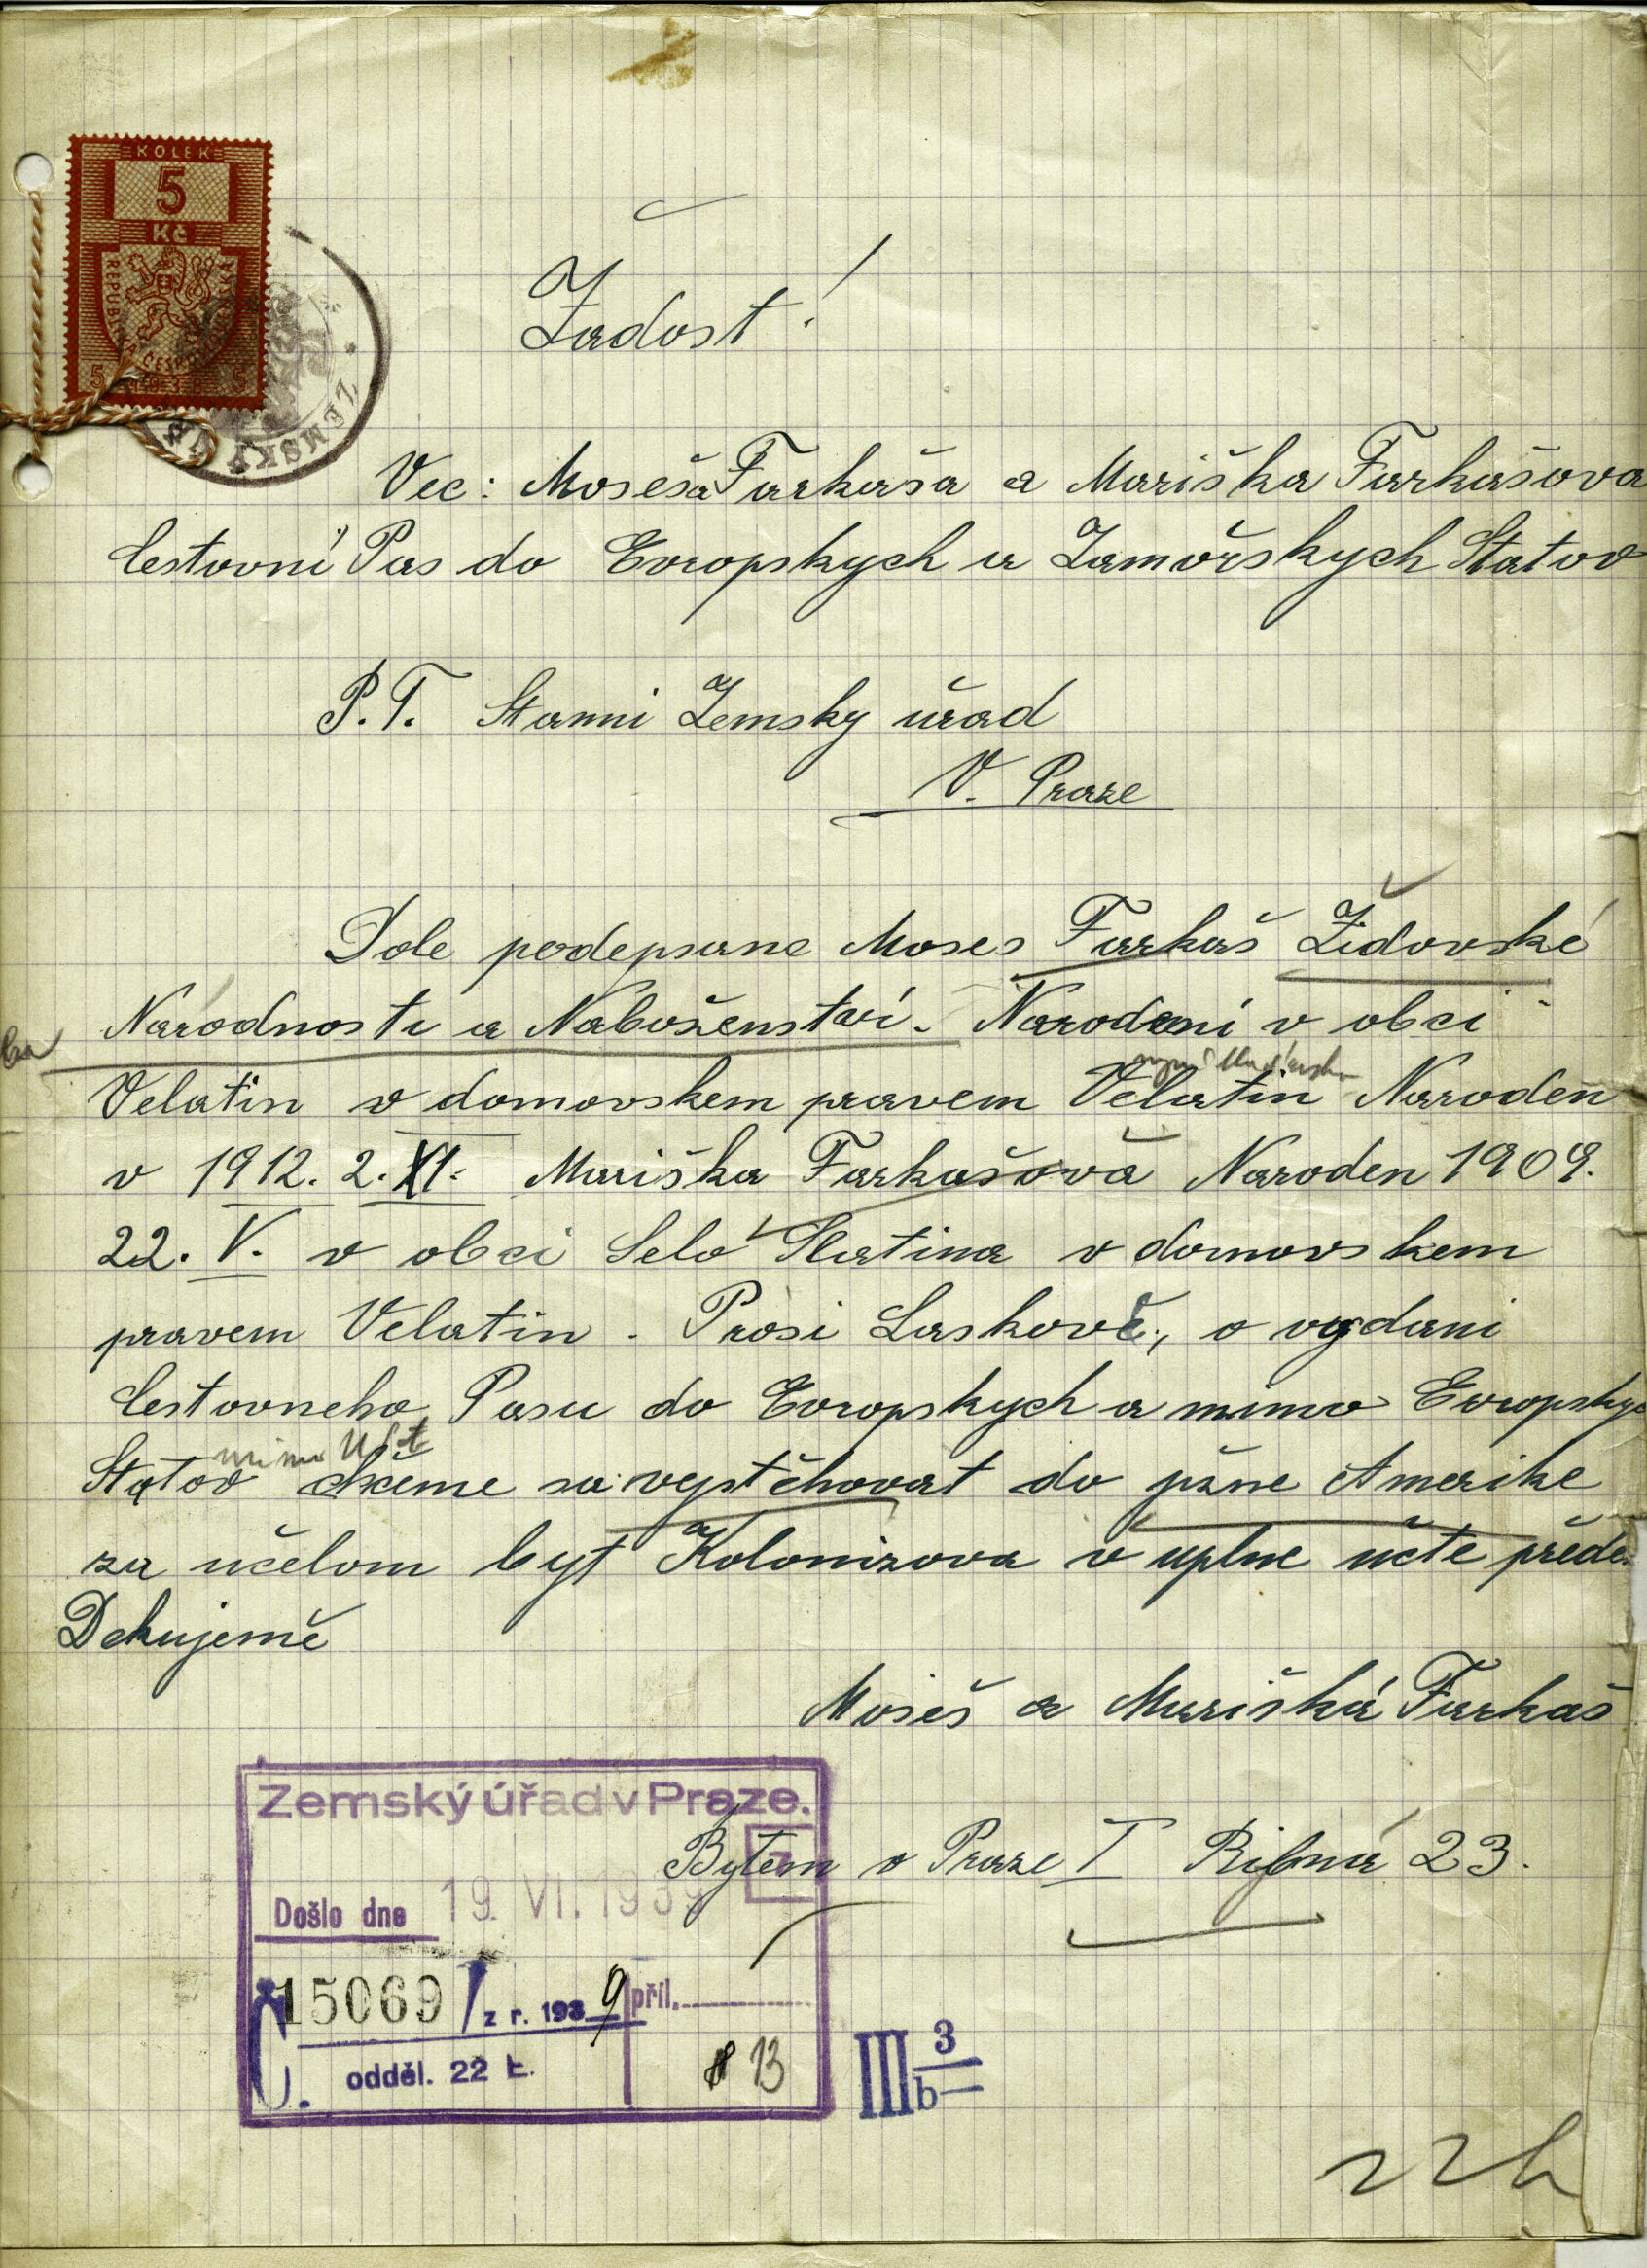 KOLEK
5
Kč
REPUBLIKA ČESKOSLOVENSKÁ
5 1938 5
ZEMSKÝ
Žadost!
Vec: Moseša Farkaša a Mariška Farkašova
Cestovni Pas do Evropskych a Zamořskych Statov
P.T. Stanni Zemsky úřad
V. Praze
Dole podepsane Moses Farkaš Židovské
Národnosti a Naboženstvi. Narodeni v obci
Velatin v domovskem pravem Velatin Naroden
v 1912. 2. XI. Mariška Farkašova Naroden 1909.
22. V. v obci Selo Slatina v domovskem
pravem Velatin. Prosi Laskově, o vydani
Cestovneho Pasu do Evropskych a mimo Evropskyc
mimo
Statov chceme sa vystěhovat do jižne Amerike
za učelom byt Kolonizova v uplne učte přede.
Dekujemě
Mošeš a Mariška Farkaš
Bytem v Praze I Ribná 23.
Zemský úřad v Praze.
Došlo dne 19. VI. 1939
15069 / z r. 1939 příl.
odděl. 22 13
III 3
b
22h